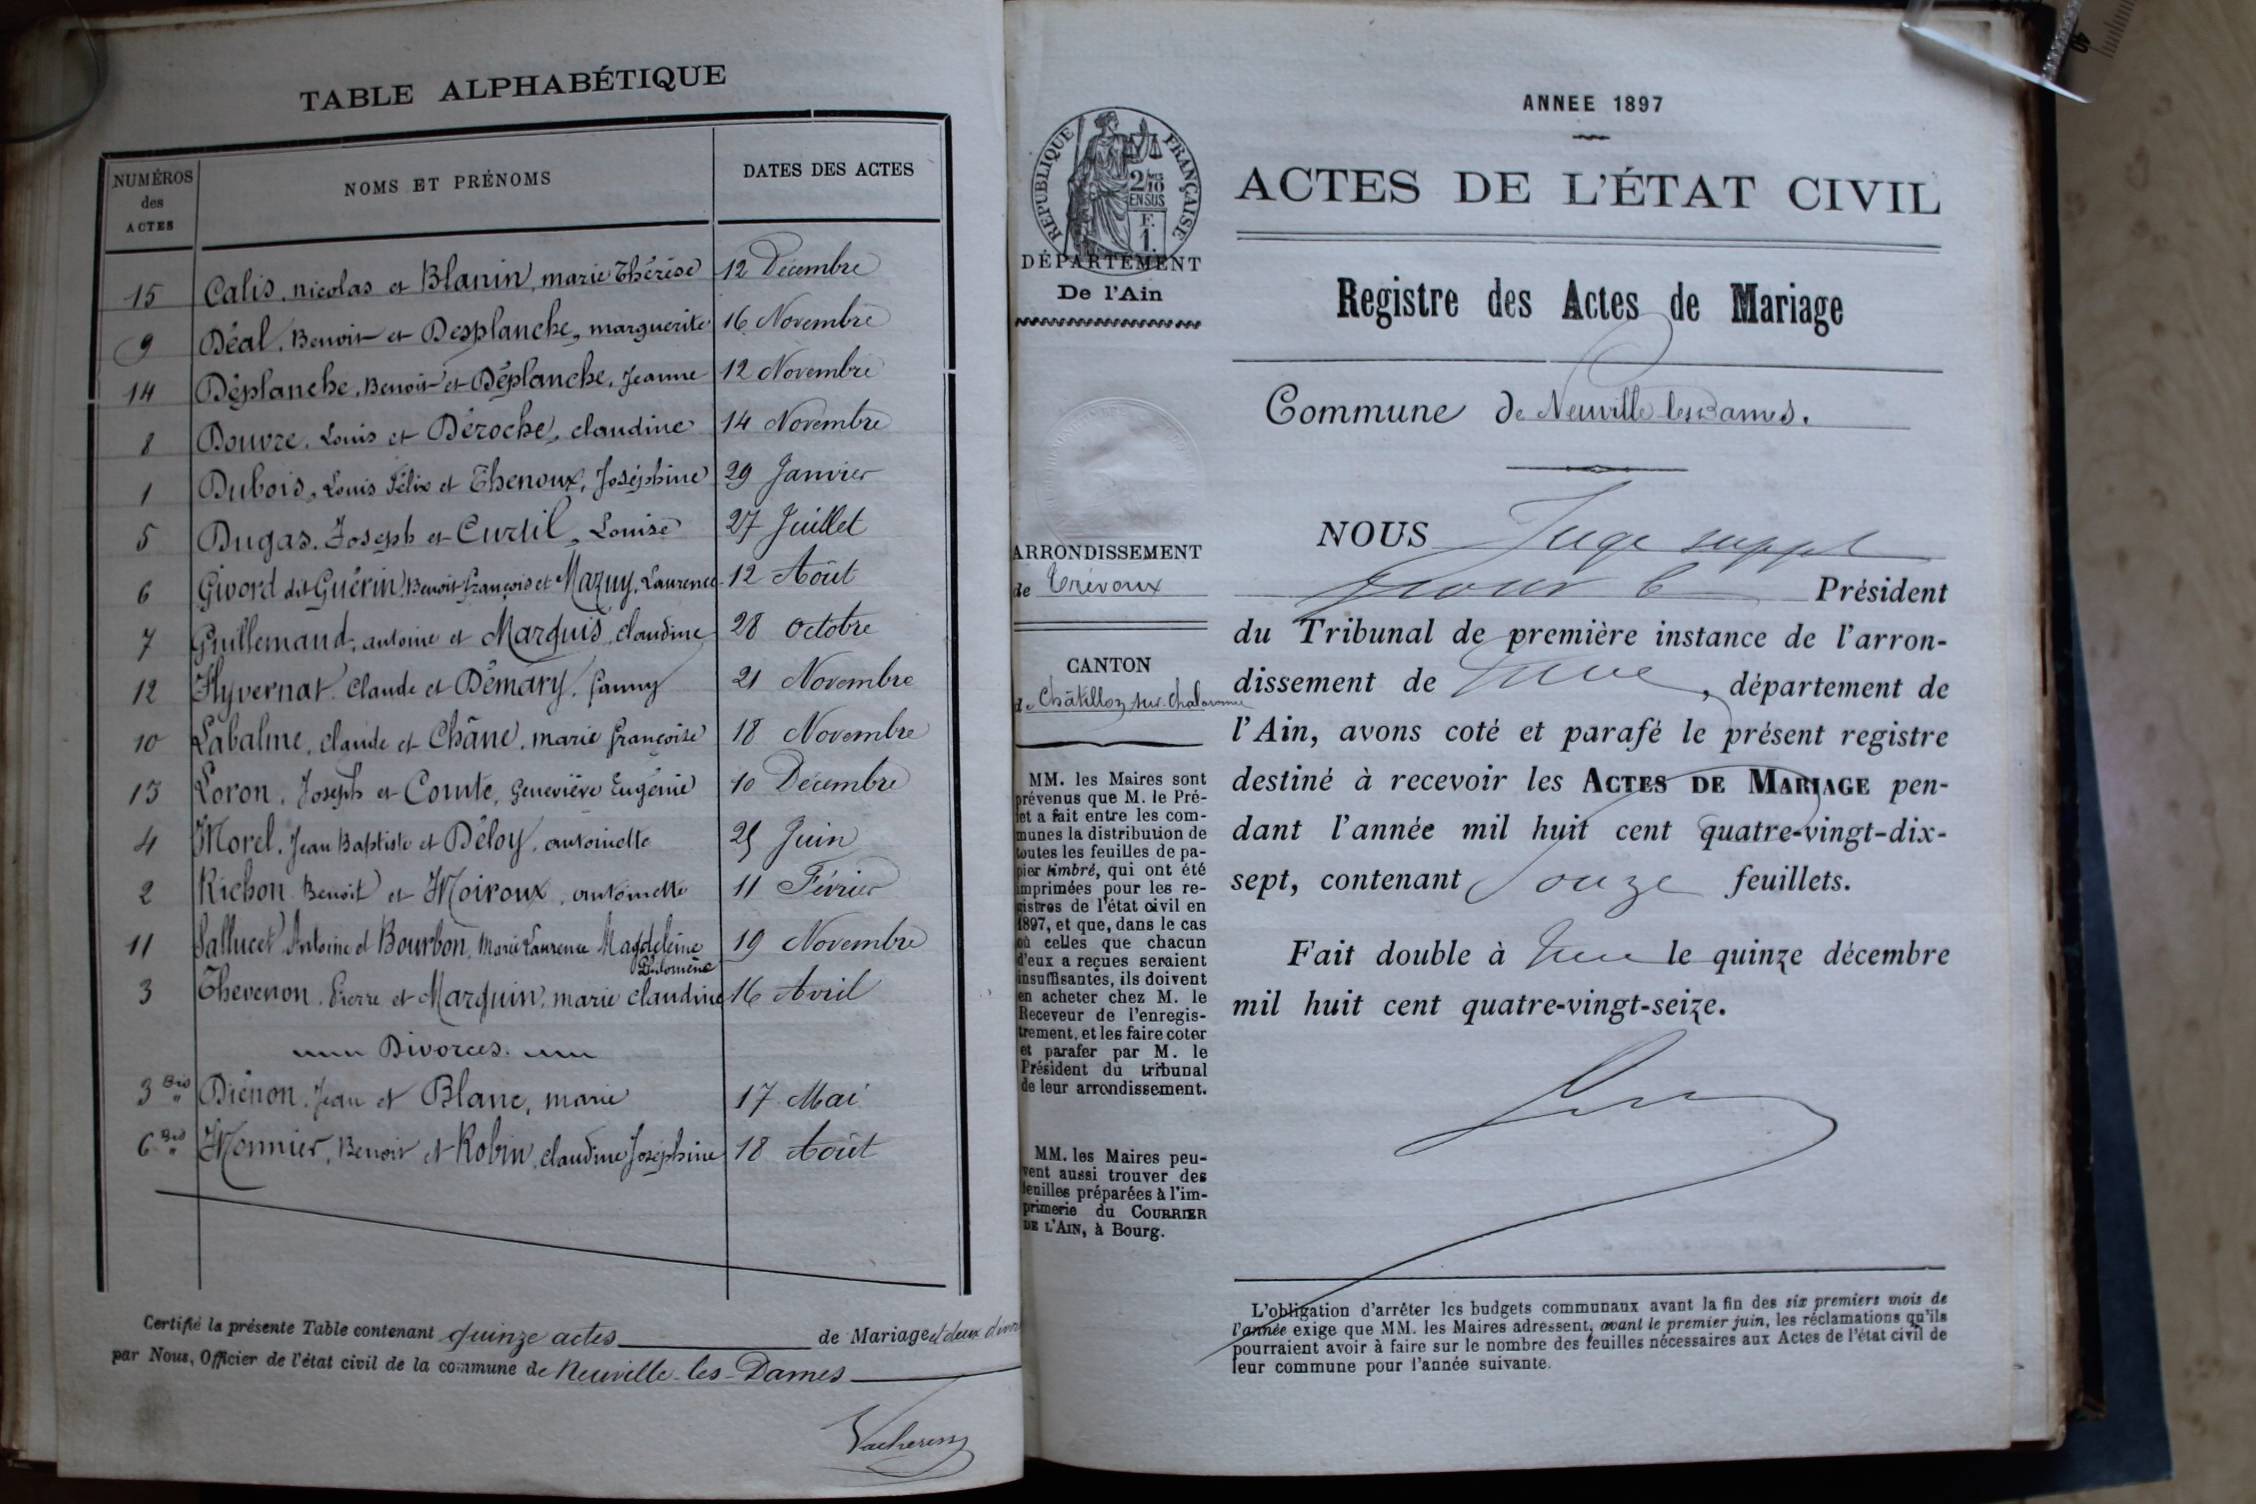 TABLE ALPHABÉTIQUE
NUMÉROS des ACTES
NOMS ET PRÉNOMS
DATES DES ACTES
15 Calis, nicolas et Blanin, marie Thérèse 12 Décembre
9 Déal, Benoit et Desplanche, marguerite 16 Novembre
14 Déplanche, Benoit et Déplanche, Jeanne 12 Novembre
8 Douvre, Louis et Déroche, claudine 14 Novembre
1 Dubois, Louis Félix et Thenoux, Joséphine 29 Janvier
5 Dugas, Joseph et Curtil, Louise 27 Juillet
6 Givord dit Guérin, Benoit françois et Mazuy, Laurence 12 Août
7 Guillemaud, antoine et Marquis, claudine 28 octobre
12 Hyvernat, Claude et Démary, fanny 21 Novembre
10 Labalme, claude et Châne, marie françoise 18 Novembre
13 Loron, Joseph et Comte, Geneviève Eugénie 10 Décembre
4 Morel, Jean Baptiste et Déloy, antoinette 25 Juin
2 Richon Benoit et Moiroux, antoinette 11 Février
11 Sallucet Antoine et Bourbon, Marie Laurence Magdeleine 19 Novembre
Philomène
3 Thevenon, Pierre et Marquin, marie claudine 16 Avril
Divorces.
3 Bis Diénon, Jean et Blanc, marie 17 Mai
6 Bis Monnier, Benoit et Robin, claudine Joséphine 18 Août
Certifié la présente Table contenant quinze actes de Mariage et deux
par Nous, Officier de l'état civil de la commune de Neuville-les-Dames
ANNEE 1897
RÉPUBLIQUE FRANÇAISE
2/10
EN SUS
F.
1.
ACTES DE L'ÉTAT CIVIL
DÉPARTEMENT
De l'Ain
Registre des Actes de Mariage
Commune de Neuville les Dames.
ARRONDISSEMENT
de Trévoux
CANTON
de Châtillon sur Chalaronne
MM. les Maires sont
prévenus que M. le Pré-
fet a fait entre les com-
munes la distribution de
toutes les feuilles de pa-
pier timbré, qui ont été
imprimées pour les re-
gistres de l'état civil en
1897, et que, dans le cas
où celles que chacun
d'eux a reçues seraient
insuffisantes, ils doivent
en acheter chez M. le
Receveur de l'enregis-
trement, et les faire coter
et parafer par M. le
Président du tribunal
de leur arrondissement.
MM. les Maires peu-
vent aussi trouver des
feuilles préparées à l'im-
primerie du COURRIER
DE L'AIN, à Bourg.
NOUS Juge suppl
pour le Président
du Tribunal de première instance de l'arron-
dissement de , département de
l'Ain, avons coté et parafé le présent registre
destiné à recevoir les ACTES DE MARIAGE pen-
dant l'année mil huit cent quatre-vingt-dix-
sept, contenant feuillets.
Fait double à le quinze décembre
mil huit cent quatre-vingt-seize.
L'obligation d'arrêter les budgets communaux avant la fin des six premiers mois de
l'année exige que MM. les Maires adressent, avant le premier juin, les réclamations qu'ils
pourraient avoir à faire sur le nombre des feuilles nécessaires aux Actes de l'état civil de
leur commune pour l'année suivante.
40